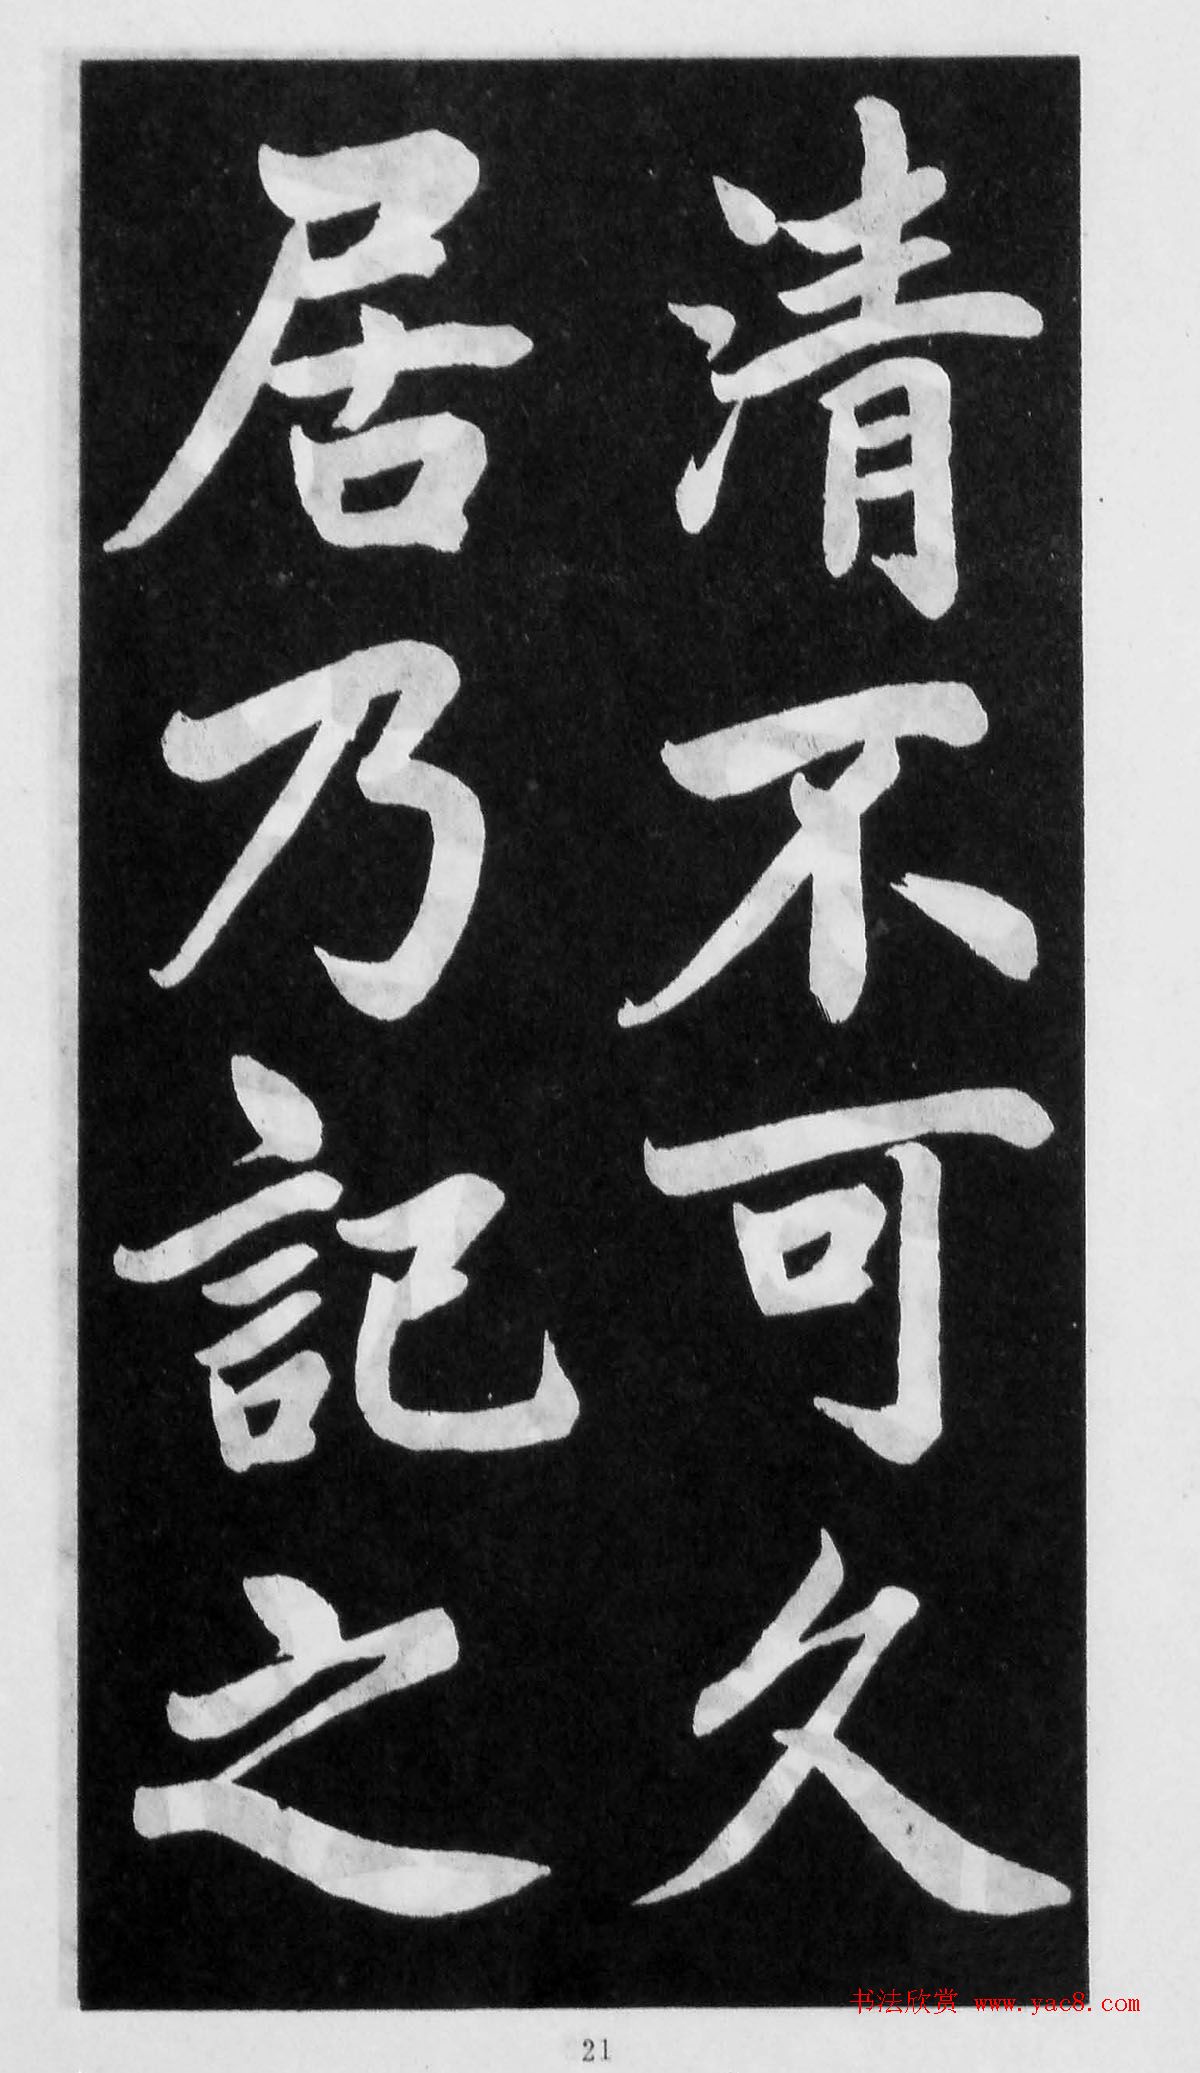 清不可久
居乃記之
书法欣赏 www.yac8.com
21